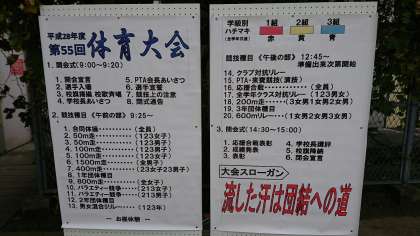 平成28年度
第55回 体育大会
1. 開会式(9:00〜9:20)
1. 開会宣言
2. 選手入場
3. 校旗掲揚 校歌斉唱
4. 学校長あいさつ
5. PTA会長あいさつ
6. 選手宣誓
7. 競技上の注意
8. 閉式通告
2. 競技種目《午前の部》9:25〜
1. 合同体操 (全員)
2. 50m走 (123女子)
3. 50m走
4. 100m走 (123女子)
5. 100m走 (123男子)
6. 1500m走 (全男子)
7. 400m走 (23女子23男子)
8. 1年団体種目
9. 800m走 (全女子)
10. バラエティー競争 (213女子)
11. バラエティー競争 (213男子)
12. 2年団体種目
13. 男女混合リレー (123年)
― お昼休憩 ―
学級別
ハチマキ
1組 2組 3組
赤 黄 青
競技種目《午後の部》12:45〜
準備出来次第開始
14. クラブ対抗リレー
15. PTA・来賓競技(演技)
16. 応援合戦 (全員)
17. 3年団体種目
18. 全学年クラス対抗リレー (123男女)
19. 200m走 (3女男1女男2女男)
20. 600mリレー (1女男2女男3女男)
3. 閉会式(14:30〜15:00)
1. 応援合戦表彰
2. 成績発表
3. 表彰
4. 学校長講評
5. 校旗降納
6. 閉会宣言
大会スローガン
流した汗は団結への道